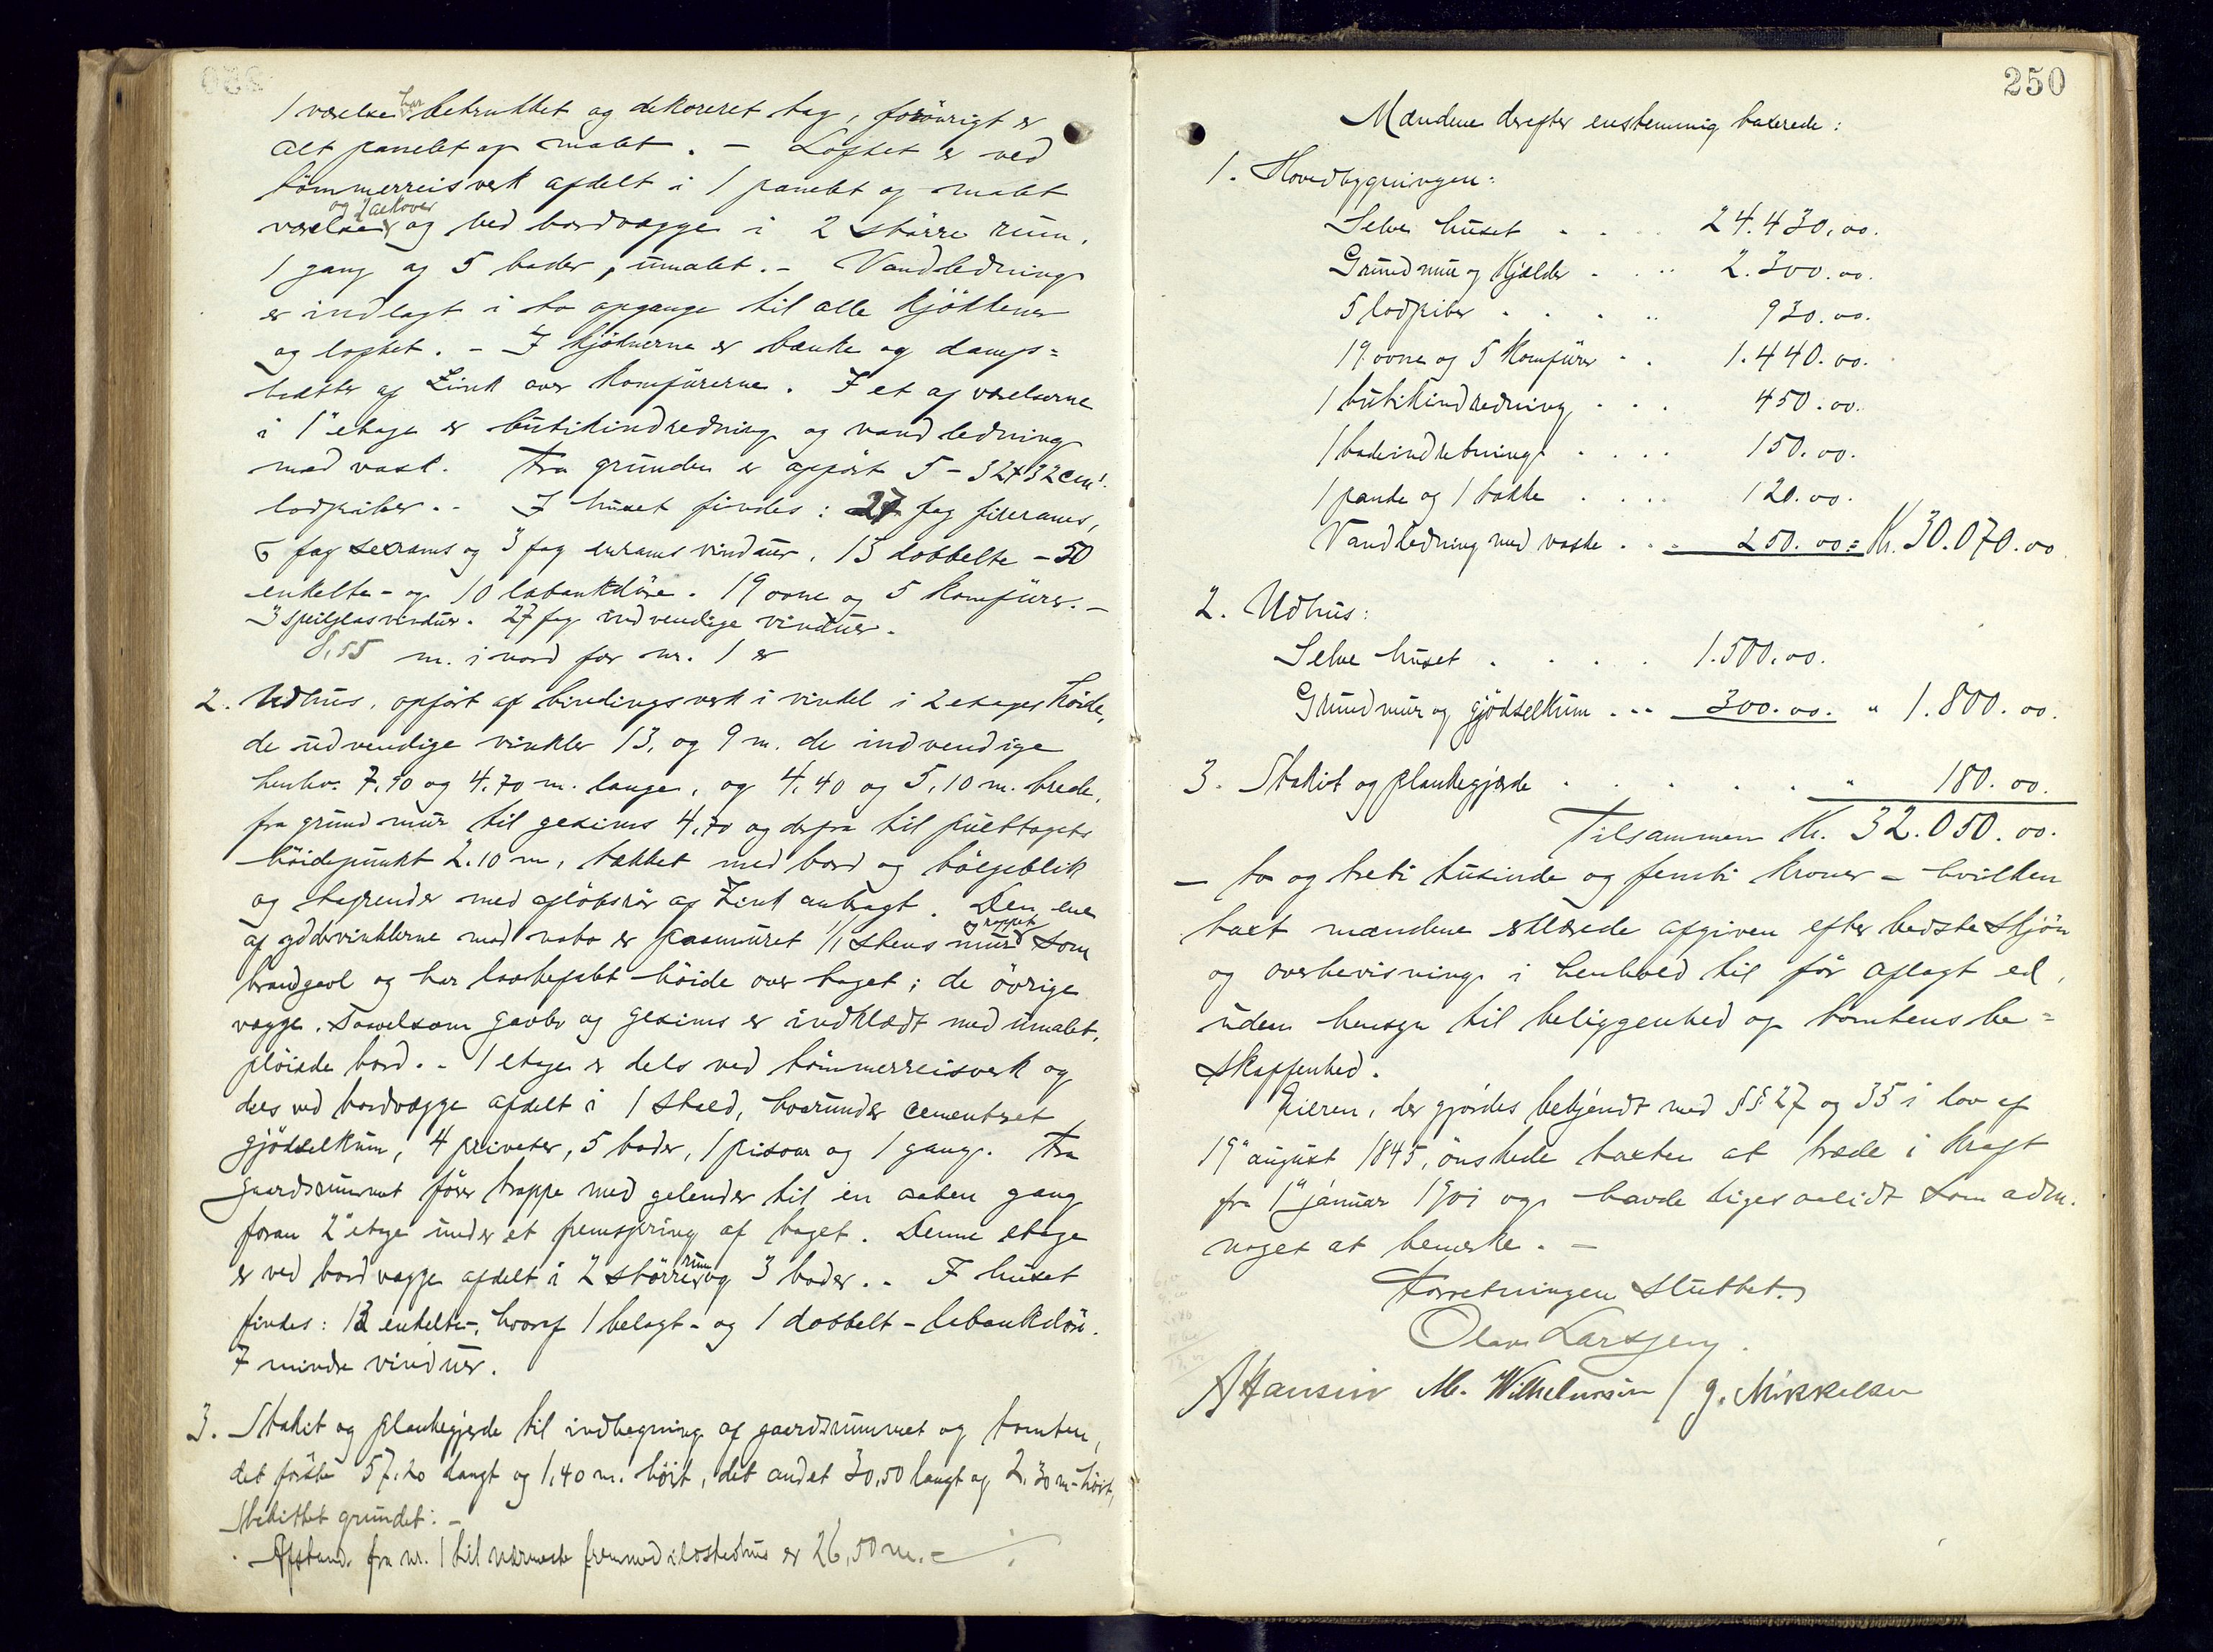 1 værelse har betrukket og dekoreret tag, forövrigt er
alt panelet og malet. - Loftet er ved
tömmerreisverk afdelt i 1 panelet og malet
værelse og 2 alkover og ved bordvægge i 2 större rum,
1 gang og 5 boder, umalet. - Vandledning
er indlagt i to opgange til alle kjökkener
og loftet. - I kjöknerne er bænke og damp=
hætter af Zink over komfürerne. I et af værelserne
i 1" etage er bütikindredning og vandledning
med vask. Fra grunden er opført 5 - 32x32 cm!
lodpiber. - I huset findes: 27 fag firerams,
6 fag sexrams og 3 fag enrams vinduer. 13 dobbelte - 50
enkelte - og 10 labankdöre. 19 ovne og 5 komfürer. -
3 speilglasvinduer. 27 fag indvendige vinduer.
8,55 m. i nord for nr. 1 er
2. Udhus, opfört af bindingsverk i vinkel i 2 etages höide,
de udvendige vinkler 13, og 9 m. de indvendige
henhv. 7,90 og 4,70 m. lange, og 4,40 og 5,10 m. brede,
fra grundmur til gesims 4,70 og derfra til pulttagets
höidepunkt 2.10 m, tækket med bord og bölgeblik
og tagrender med aflöbsrör af Zink anbragt. Den ene
af ydervinklerne mod nabo er paamuret 1/1 stens og rappet mur som
brandgavl og har lovbefalet höide over taget; de övrige
vægge, saavelsom gavle og gesims er indklædt med umalet,
plöiede bord. - 1 etage er dels ved tömmerreisverk og
dels ved bordvægge afdelt i 1 stald, hvorunder cementeret
gjödselkum, 4 priveter, 5 boder, 1 pisoar og 1 gang. Fra
gaardsrummet förer trappe med gelender til en aaben gang
foran 2" etage under et fremspring af taget. Denne etage
er ved bordvægge afdelt i 2 större rum og 3 boder. - I huset
findes: 12 enkelte -, hvoraf 1 belagt - og 1 dobbelt - labankdör.
7 mindre vinduer.
3. Stakit og plankegjerde til indhegning af gaardsrummet og tomten,
det förste 57,20 langt og 1,40 m. höit, det andet 30,50 langt og 2,30 m. höit,
grundet. -
Afstand fra nr. 1 til nærmeste fremmed ildstedhus er 26,50 m. - ./.
250
Mændene derefter enstemmig taxerede:
1. Hovedbygningen:
Selve huset . . . . 24.430,00.
Grundmur og Kjælder . . . 2.300.00.
5 lodpiber . . . . 930.00.
19 ovne og 5 Komfürer . . 1.440.00.
1 butikindredning . . . 450.00.
1 badeindretning . . . . 150.00.
1 panke og 1 takke . . . . 120.00.
Vandledning med vaske . . . 250.00 = Kr. 30.070.00
2. Udhus:
Selve huset . . . . 1.500.00.
Grundmur og gjödselkum . . . 300.00. " 1.800.00.
3. Stakit og plankegjerde . . . . . " 180.00.
Tilsammen Kr. 32.050.00.
- to og treti tusinde og femti kroner - hvilken
taxt mændene erklærede afgiven efter bedste skjön
og overbevisning i henhold til för aflagt ed,
uden hensyn til beliggenhed og tomtens be=
skaffenhed.
Eieren, der gjordes bekjendt med §§ 27 og 35 i lov af
19" august 1845, önskede taxten at træde i kraft
fra 1" januar 1901 og havde ligesaalidt som adm.
noget at bemerke. -
Forretningen sluttet.
Olav Larssen.
A Hansen M. Wilhelmsen / J. Mikkelsen